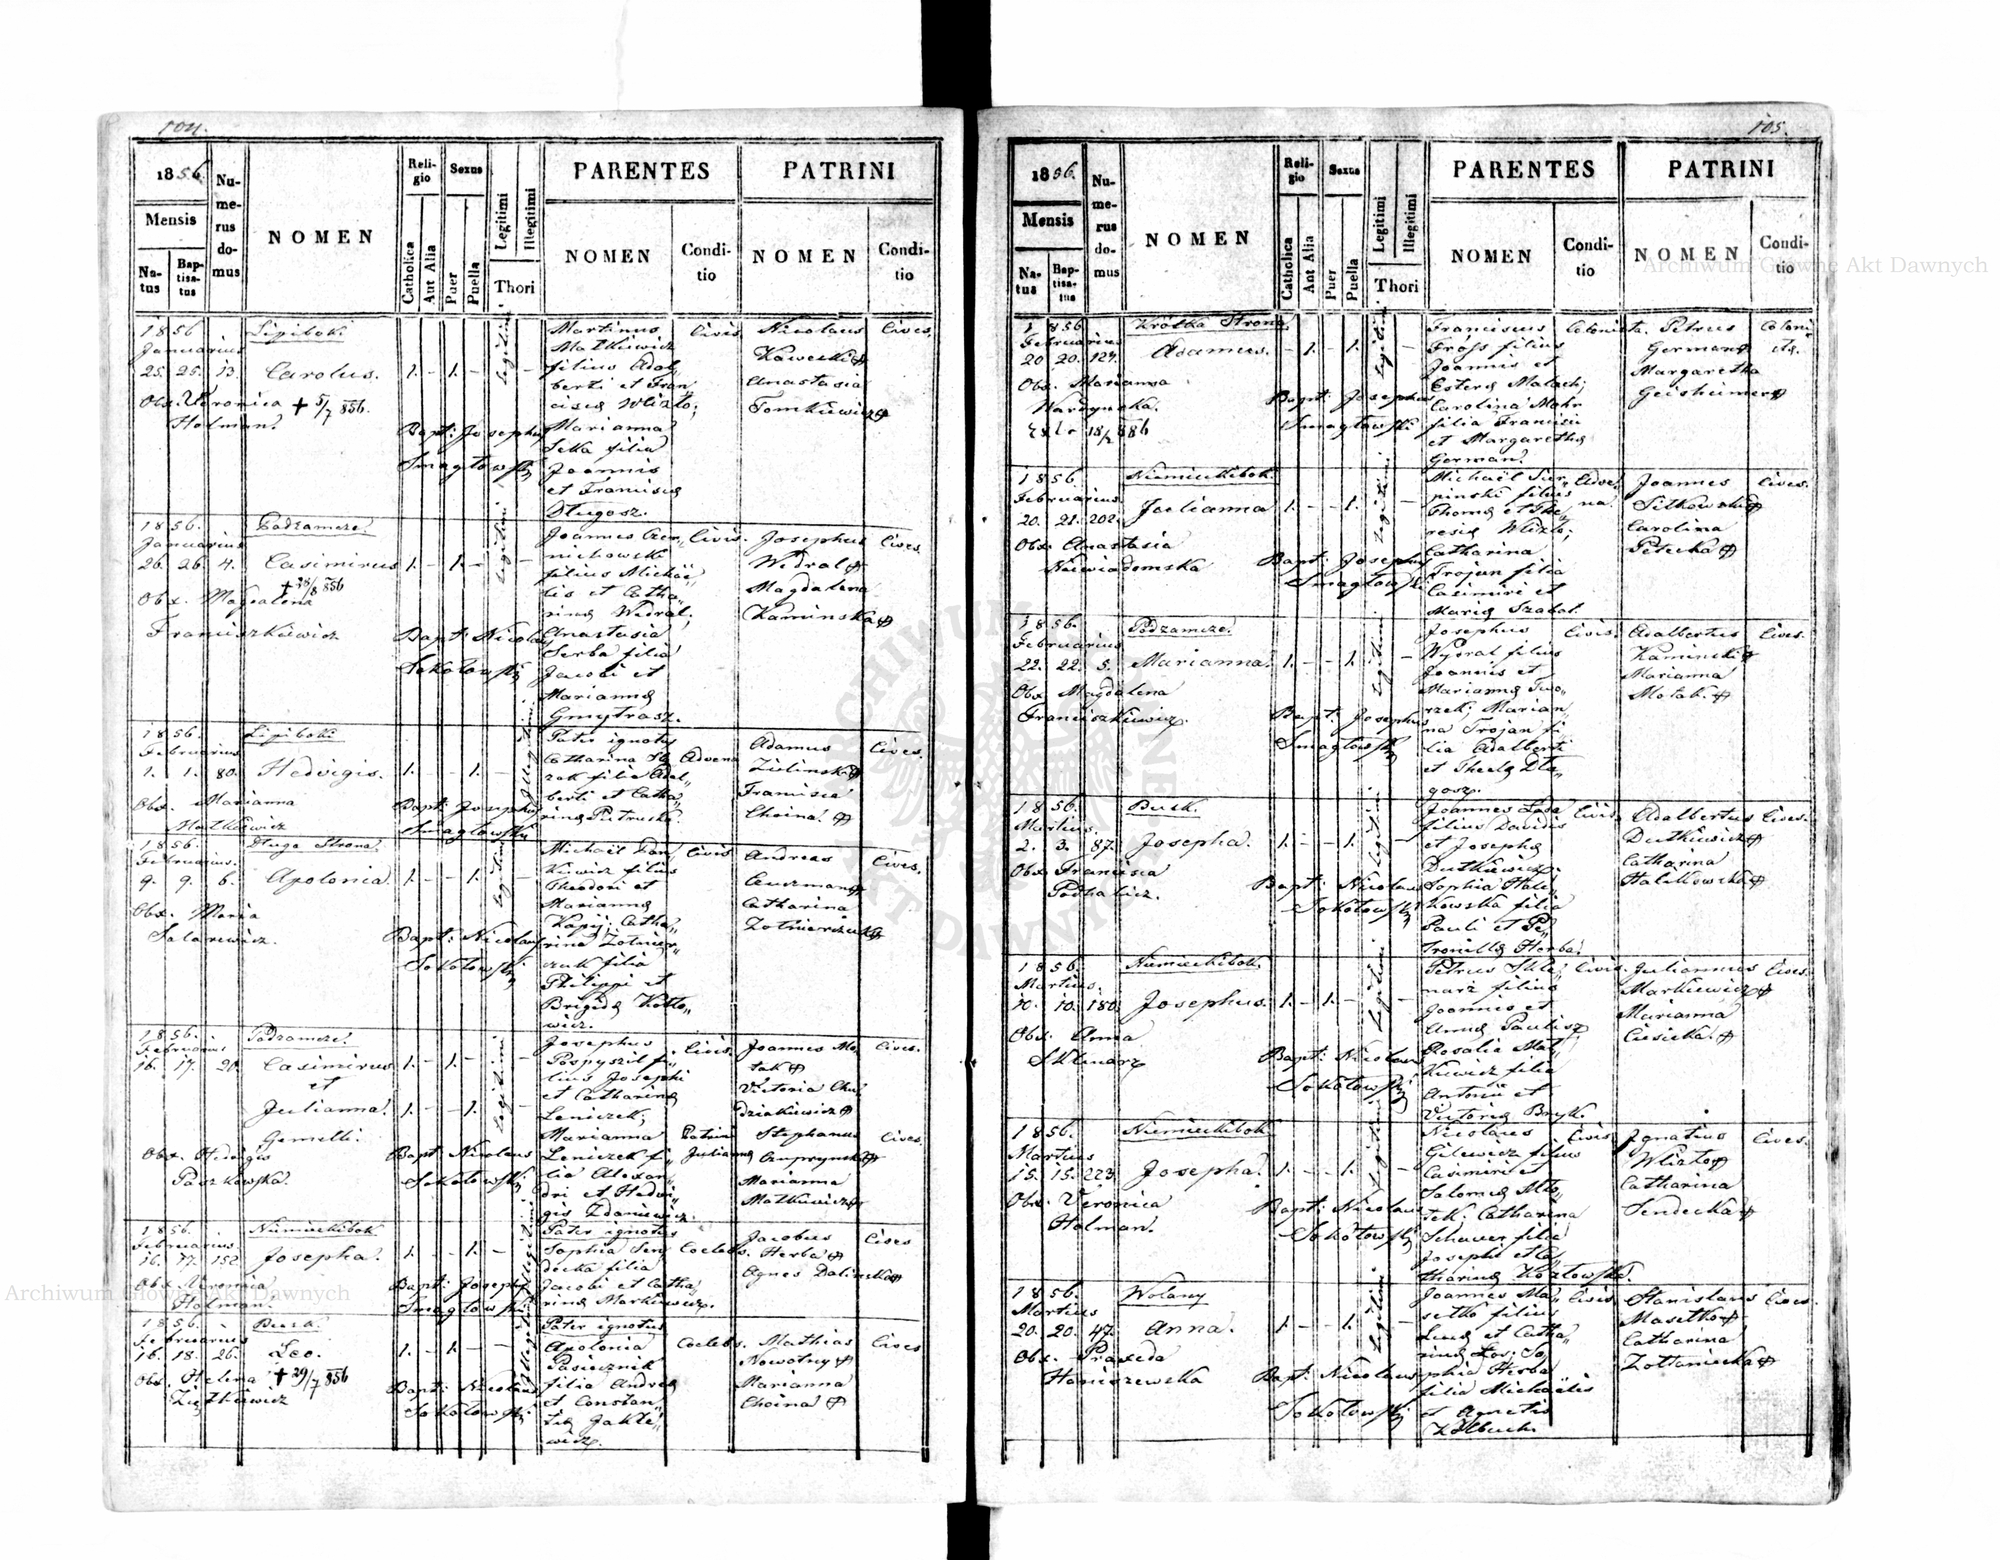 104.
1856.
Mensis
Natus
Baptisatus
Numerus domus
NOMEN
Religio
Catholica
Aut Alia
Sexus
Puer
Puella
Legitimi
Illegitimi
Thori
PARENTES
NOMEN
Conditio
PATRINI
NOMEN
Conditio
1856
Januarius
25. 25. 13.
Lipiboki
Carolus.
1. – 1. – –
Legitimi
Obx. Veronica + 5/7 856.
Holman.
Bapt: Josephus
Smagłowski
Martinus
Matkiewicz
filius Adal„
berti et Fran
ciscæ Wlizło;
Marianna
Seka filia
Joannis
et Franciscæ
Długosz.
Civis
Nicolaus
Kawecki
Anastasia
Tomkiewicz
Cives.
1856.
Januarius
26. 26. 4.
Podzamcze.
Casimirus
+ 856
1. – 1. –
Legitimi
Obx. Magdalena
Franciszkiewicz
Bapt: Nicolaus
Sokołowski
Joannes Czer„
nichowski
filius Michaë„
lis et Catha„
rinæ Wedral;
Anastasia
Serba filia
Jacobi et
Mariannæ
Gmytrasz.
Civis.
Josephus
Wedral
Magdalena
Kaminska
Cives.
1856.
Februarius
1. 1. 80.
Lipiboki
Hedvigis.
1. – – 1. –
Illegitimi
Obx. Marianna
Matkiewicz
Bapt: Josephus
Smagłowski
Pater ignotus
Catharina
filia Adal„
berti et Catha„
rinæ
Advena
Adamus
Zielinski
Francisca
Choina.
Cives.
1856.
Februarius.
9. 9. 6.
Długa Strona.
Apolonia.
1. – – 1. –
Legitimi
Obx. Maria
Salarewicz.
Bapt: Nicolaus
Sokołowski
Michaël
filius
Theodori et
Mariannæ
Kapij; Catha„
rina Żołnier„
czuk filia
Philippi et
Brigidæ Kotło„
wicz.
Civis
Andreas
Catharina
Cives.
1856.
Februarius
16. 17. 20.
Podzamcze.
Casimirus
et
Julianna.
Gemelli.
1. – 1. –
1. – – 1.
Legitimi
Obx. Hedvigis
Paszkowska.
Bapt. Nicolaus
Sokołowski
Josephus
Pospyszil fi„
lius Josephi
et Catharinæ
Leniczek;
Marianna
Leniczek fi„
lia Alexan„
dri et Hedvi„
gis Zdaniewicz.
Civis.
Patrini
Juliannæ
Joannes Mo„
tak
Victoria Chu„
dziakiewicz
Stephanus
Marianna
Matkiewicz
Cives.
Cives.
1856.
Februarius.
16. 17. 152.
Niemieckibok
Josepha.
1. – – 1. –
Illegitimi
Obx. Veronica
Holman.
Bapt: Josephus
Smagłowski
Pater ignotus
Sophia Sen„
decka filia
Jacobi et Catha„
rinæ Markiewicz.
Coelebs.
Jacobus
Herba
Agnes Dalinska
Cives
1856.
Februarius
16. 18. 26.
Busk.
Leo.
1. – 1. – –
Illegitimi
Obx. Helena + 29/7 856
Ziętkiewicz
Bapt: Nicolaus
Sokołowski
Pater ignotus
Apolonia
Pasiecznik
filia Andreæ
et Constan„
tiæ Jakłe„
wicz.
Coelebs.
Mathias
Nowotny
Marianna
Choina
Cives
105.
1856.
Mensis
Natus
Baptisatus
Numerus domus
NOMEN
Religio
Catholica
Aut Alia
Sexus
Puer
Puella
Legitimi
Illegitimi
Thori
PARENTES
NOMEN
Conditio
PATRINI
NOMEN
Conditio
1856.
Februarius
20 20. 124.
Krótka Strona
Adamus.
– 1. – 1. –
Legitimi
Obx. Marianna
Bapt: Josephus
Smagłowski
Franciscus
Fröss filius
Joannis et
Esteræ Malach;
Carolina Mohr
filia Francisci
et Margarethæ
German.
Colonista.
Petrus
German
Margaretha
Geisheimer
Coloni
stæ.
1856.
Februarius
20. 21. 202.
Niemieckibok
Julianna
1. – – 1. –
Legitimi
Obx. Anastasia
Niewiadomska
Bapt: Josephus
Smagłowski
Michaël Sier„
pinski filius
Thomæ et The„
resiæ Wlizło;
Catharina
Trojan filia
Casimiri et
Mariæ Szabat.
Adve„
na.
Joannes
Sitkowski
Carolina
Petecka
Cives.
1856.
Februarius
22. 22. 5.
Podzamcze.
Marianna.
1. – – 1. –
Legitimi
Obx. Magdalena
Franciszkiewicz.
Bapt: Josephus
Smagłowski
Josephus
Wydrat filius
Joannis et
Mariannæ Two„
rzek; Marian„
na Trojan fi„
lia Adalberti
et Theclæ Dłu„
gosz.
Civis.
Adalbertus
Kaminski
Marianna
Motak.
Cives.
1856.
Martius.
2. 3. 87.
Busk.
Josepha.
1. – – 1. –
Legitimi
Obx. Francisca
Podhalicz.
Bapt: Nicolaus
Sokołowski
Joannes
filius Davidis
et Josephæ
Dutkiewicz.
Sophia Hali„
kowska filia
Pauli et Pe„
tronillæ Herba.
Civis.
Adalbertus
Dutkiewicz
Catharina
Halikowska
Cives.
1856.
Martius.
10. 10. 180.
Niemieckibok.
Josephus.
1. – 1. – –
Legitimi
Obx. Anna
Sklenarz
Bapt: Nicolaus
Sokołowski
Petrus Skle„
narz filius
Joannis et
Annæ Paulisz
Rosalia Mat„
kiewicz filia
Antonii et
Victoriæ Bryk.
Civis.
Juliannus
Markiewicz
Marianna
Ciesicka.
Cives.
1856.
Martius
15. 15. 223.
Niemieckibok
Josepha.
1. – – 1. –
Legitimi
Obx. Veronica
Holman.
Bapt: Nicolaus
Sokołowski
Nicolaus
Gilewicz filius
Casimiri et
Salomeæ Mło„
tek. Catharina
Schauer filia
Josephi et Ca„
tharinæ Kozłowska.
Civis.
Ignatius
Wlizło
Catharina
Sendecka
Cives.
1856.
Martius
20. 20. 47.
Wolany
Anna.
1. – – 1. –
Legitimi
Obx. Praxeda
Haniszewska
Bapt: Nicolaus
Sokołowski
Joannes Ma„
setko filius
Lucæ et Catha„
rinæ Łoś; So„
phia Herba
filia Michaëlis
et Agnetis
Civis.
Stanislaus
Masetko
Catharina
Żołtaniecka
Cives.
Archiwum Główne Akt Dawnych
Archiwum Główne Akt Dawnych
ARCHIWUM GŁÓWNE AKT DAWNYCH